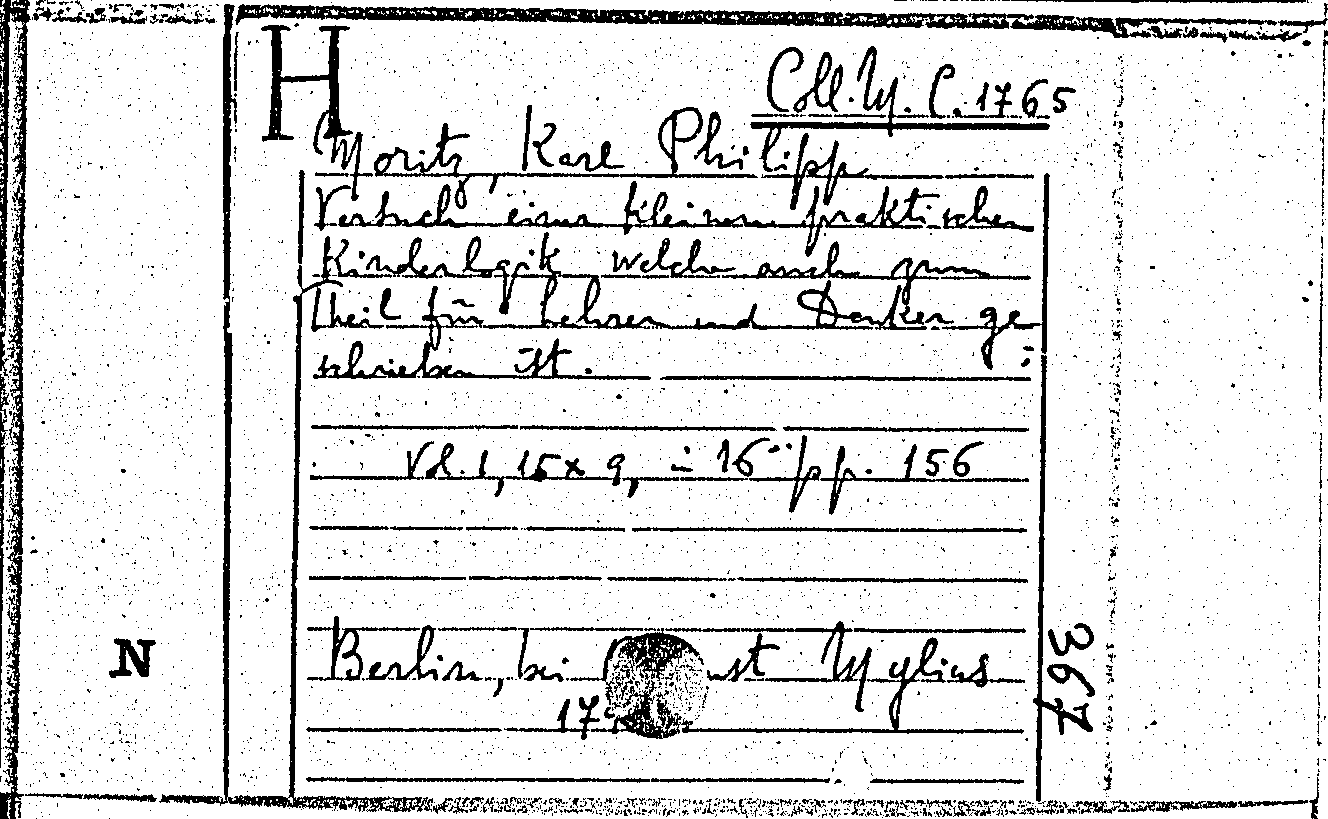 H
Coll. M. C. 1765
Moritz, Karl Philipp
Versuch einer kleinen praktischen
Kinderlogik welche auch zum
Theil für Lehrer und Denker ge
schrieben ist.
Vol. 1, 15 x 9, = 16° pp. 156
Berlin, bei Mylius
N
367